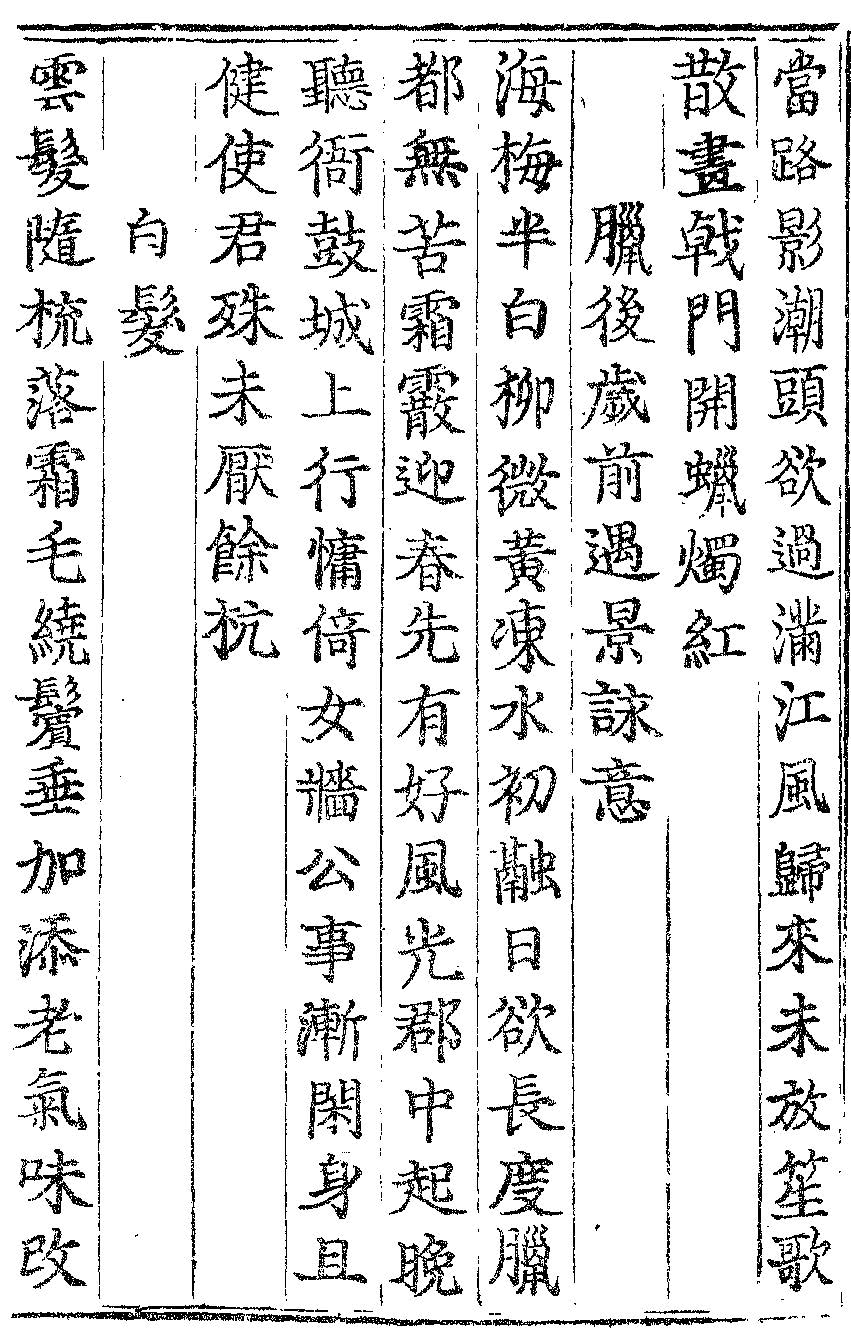 當路影潮頭欲過滿江風歸來未放笙歌
散畫戟門開蠟燭紅
臘後歲前遇景詠意
海梅半白柳微黃凍水初融日欲長度臘
都無苦霜霰迎春先有好風光郡中起晚
聽衙鼓城上行慵倚女牆公事漸閑身且
健使君殊未厭餘杭
白髮
雲髮隨梳落霜毛繞鬢垂加添老氣味改